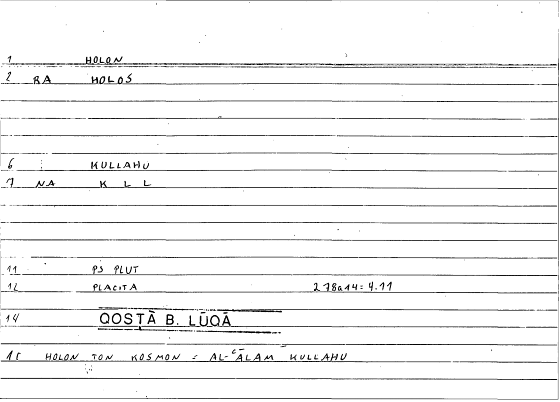 1 HOLON
2 RA HOLOS
6 KULLAHU
7 NA K L L
11 PS PLUT
12 PLACITA 278a14 = 4.11
14 QOSṬĀ B. LŪQĀ
15 HOLON TON KOSMON = AL-ʿĀLAM KULLAHU